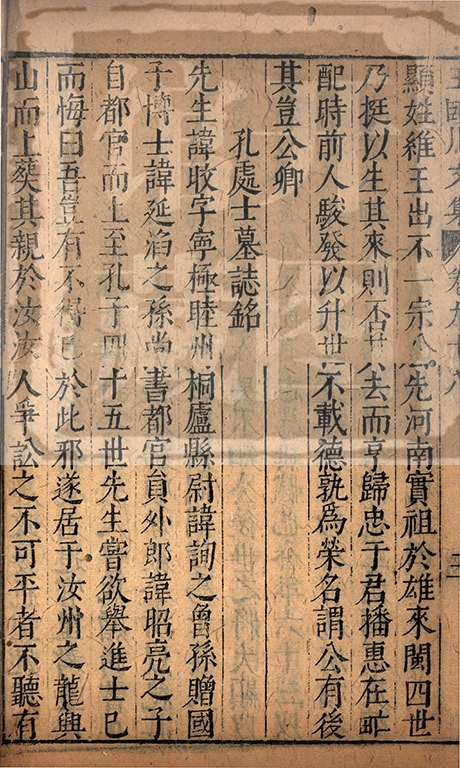 王國川文集 卷九十八 三
顯姓維王出不一宗公先河南實祖於雄來閩四世
乃挺以生其來則否其去而亨歸忠于君播惠在甿
配時前人駿發以升世不載德孰爲榮名謂公有後
其豈公卿
孔處士墓誌銘
先生諱旼字寧極睦州桐廬縣尉諱詢之曾孫贈國
子博士諱延滔之孫尚書都官員外郎諱昭亮之子
自都官而上至孔子四十五世先生嘗欲舉進士已
而悔曰吾豈有不得已於此邪遂居于汝州之龍興
山而上葬其親於汝汝人爭訟之不可平者不聽有